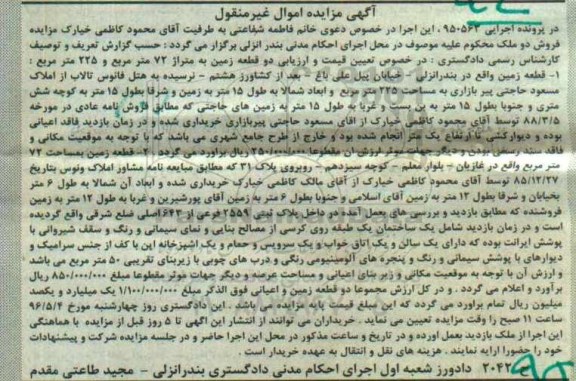 آگهی مزایده اموال غیرمنقول
در پرونده اجرایی ۹۵۰۵۶۳ ، این اجرا در خصوص دعوی خانم فاطمه شفاعتی به طرفیت آقای محمود کاظمی خیارک مزایده
فروش دو ملک محکوم علیه موصوف در محل اجرای احکام مدنی بندر انزلی برگزار می گردد : حسب گزارش تعریف و توصیف
کارشناس رسمی دادگستری : در خصوص تعیین قیمت و ارزیابی دو قطعه زمین به متراژ ۷۲ متر مربع و ۲۲۵ متر مربع :
۱- قطعه زمین واقع در بندرانزلی - خیابان پیل علی باغ - بعد از کشاورز هشتم - نرسیده به هتل فانوس تالاب از املاک
مسعود حاجتی پیر بازاری به مساحت ۲۲۵ متر مربع و ابعاد شمالا به طول ۱۵ متر به زمین و شرقا بطول ۱۵ متر به کوچه شش
متری و جنوبا بطول ۱۵ متر به پن بست و غربا به طول ۱۵ متر به زمین های حاجتی که مطابق فروش نامه عادی در مورخه
۸۸/۳/۵ توسط آقای محمود کاظمی خیارک از اقای مسعود حاجتی پیربازاری خریداری شده و در زمان بازدید فاقد اعیانی
بوده و دیوارکشی با ارتفاع یک متر انجام شده بود و خارج از طرح جامع شهری می باشد که با توجه به موقعیت مکانی و
فاقد سند رسمی بودن و دیگر جهات موثر ارزش آن مقطوعا ۲۵۰/۰۰۰/۰۰۰ ریال برآورد می گردد ۲- قطعه زمین بمساحت ۷۲
متر مربع واقع در غازیان - بلوار معلم - کوچه سیزدهم - روبروی پلاک ۳۱ که مطابق مبایعه نامه مشاور املاک ونوس بتاریخ
۸۵/۱۲/۲۷ توسط آقای محمود کاظمی خیارک از آقای مالک کاظمی خیارک خریداری شده و ابعاد آن شمالا به طول ۶ متر
بخیابان و شرقا بطول ۱۲ متر به زمین آقای اسلامی و جنوبا بطول ۶ متر به زمین آقای پورشیرین و غربا به طول ۱۲ متر به زمین
فروشنده که مطابق بازدید و بررسی های بعمل آمده در داخل پلاک ثبتی ۲۵۵۹ فرعی از ۶۴۳ اصلی ضلع شرقی واقع گردیده
است و در زمان بازدید شامل یک ساختمان یک طبقه روی کرسی از مصالح بنایی و نمای سیمانی و رنگ و سقف شیروانی با
پوشش ایرانت بوده که دارای یک سالن و یک اتاق خواب و یک سرویس و حمام و یک اشپزخانه اپن با کف از جنس سرامیک و
دیوارهای با پوشش سیمانی و رنگ و پنجره های آلومینیومی رنگی و درب های چوبی با زیربنای تقریبی ۵۰ متر مربع می باشد
و ارزش آن با توجه به موقعیت مکانی و زیر بنای اعیانی و مساحت عرصه و دیگر جهات موثر مقطوعا مبلغ ۸۵۰/۰۰۰/۰۰۰ ریال
برآورد و اعلام می گردد . و در کل ارزش مجموعا دو قطعه زمین و اعیانی فوق الذکر مبلغ ۱/۱۰۰/۰۰۰/۰۰۰ یک میلیارد و یکصد
میلیون ریال تمام براورد می گردد که این مبلغ قیمت پایه مزایده می باشد . این دادگستری روز چهارشنبه مورخ ۹۶/۵/۴
ساعت ۱۱ صبح را وقت مزایده تعیین می نماید . خریداران می توانند از انتشار این اگهی تا ۵ روز قبل از مزایده با هماهنگی
این اجرا از ملک بازدید بعمل اورده و در تاریخ و ساعت مذکور در محل این اجرا حاضر و در جلسه مزایده شرکت و پیشنهادات
خود را حضورا ارایه نمایند . هزینه های نقل و انتقال به عهده خریدار است .
۲۰۴۲ دادورز شعبه اول اجرای احکام مدنی دادگستری بندرانزلی - مجید طاعتی مقدم